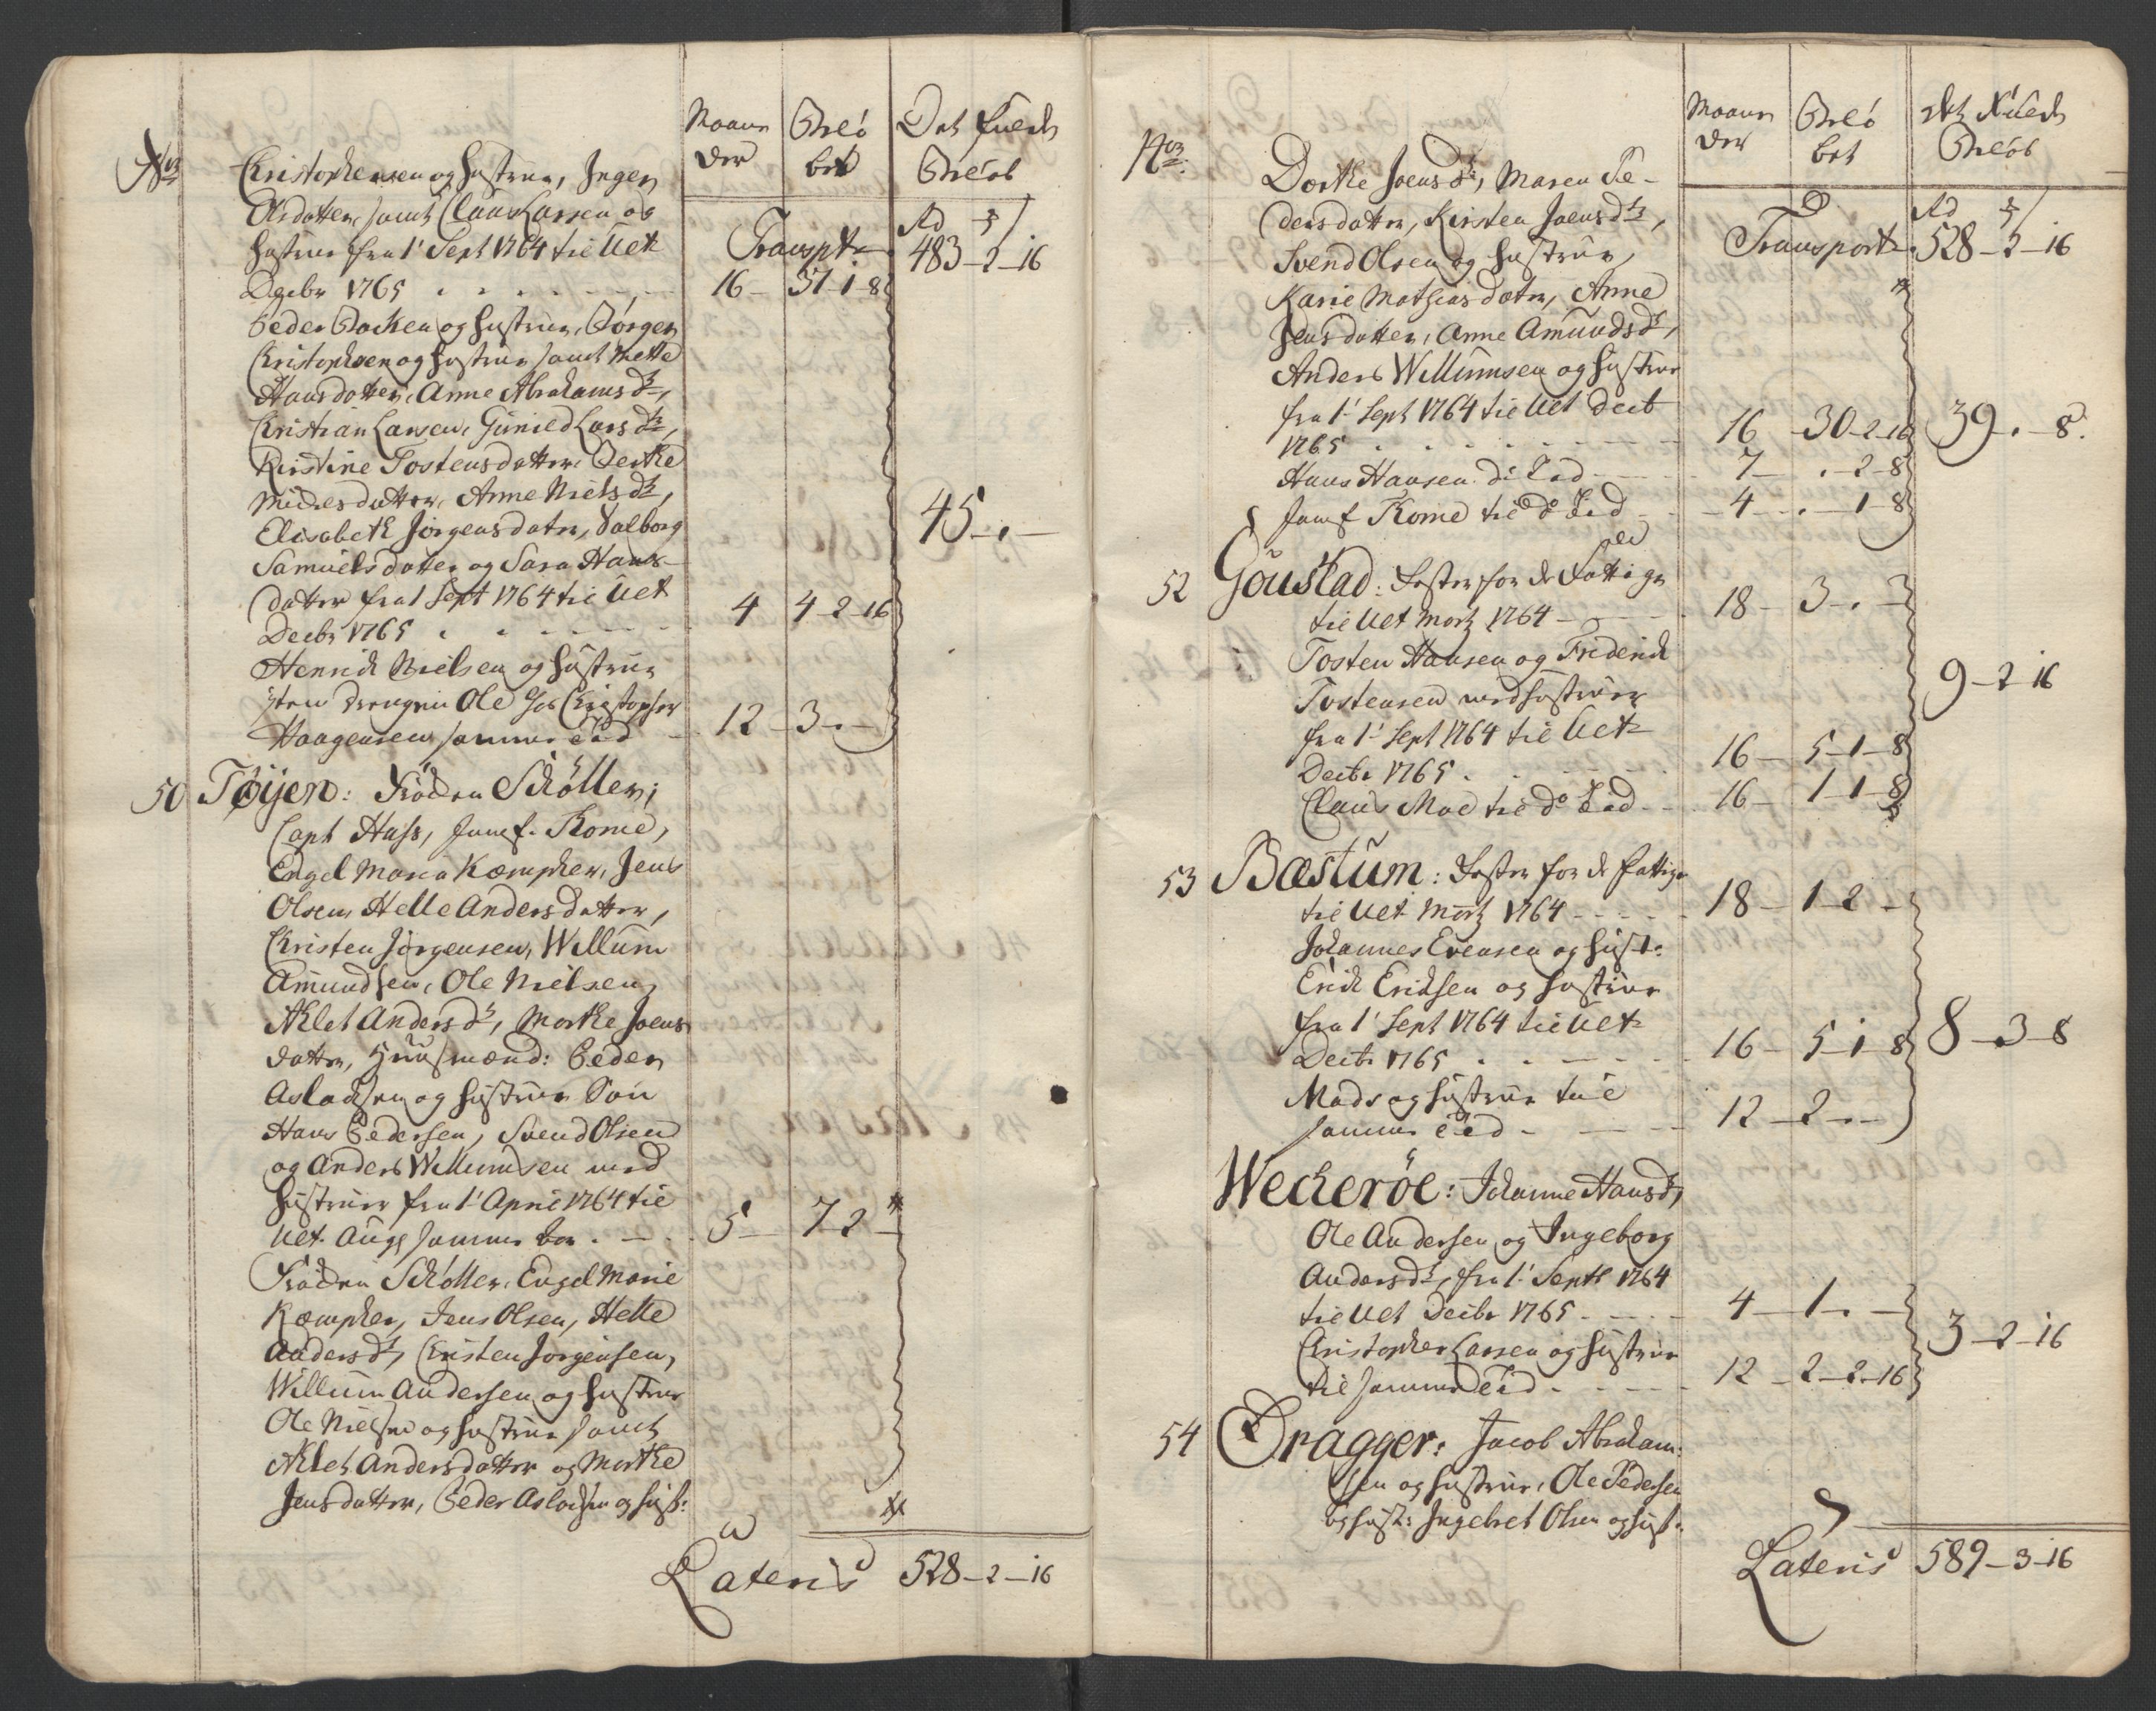 No
Maane
der
Beløbet
Det fulde
Beløb
Christophersen og Hustrue, Inger
Olsdatter, samt Claus Larsen og
Hustrue fra 1 Sept 1764 til Ult
Decbr 1765 16 - 37-1-8
Transpt Rd 483-2-16
Peder Backen og Hustrue, Jørgen
Christophersen og Hustrue samt Mette
Hansdatter, Anne Abrahamsdr,
Christian Larsen, Gunild Larsdr,
Kirstine Tostensdatter, Berthe
Anne Nielsdr,
Elisabeth Jørgensdatter, Valborg
Samuelsdatter og Sara Hans-
datter fra 1 Sept 1764 til Ult
Decbr 1765 4 4-2-16
45 - . -
Henrich Nielsen og Hustrue
Drengen Ole hos Christopher
Haagensen samme Tid 12 - 3 - . -
50 Tøijen: Frøken Schøller,
Capt Hass, Jomf. Kome,
Engel Maria Kæmpher, Jens
Olsen, Helle Andersdatter,
Christen Jørgensen, Willum
Amundsen, Ole Nielsen,
Aslet Andersdr, Marthe Joens
datter, Huusmænd: Peder
Aslachsen og Hustrue Søn
Hans Pedersen, Svend Olsen
og Anders Willumsen med
Hustruer fra 1 April 1764 til
Ult. Aug samme Aar 5 - 7-2 -
Frøken Schøller, Engel Marie
Kæmpher, Jens Olsen, Helle
Andersdr, Christen Jørgensen,
Willum Andersen og Hustrue
Ole Nielsen og Hustrue samt
Aslet Andersdatter og Marthe
Jensdatter, Peder Aslachsen og Hust:
Lateris 528-2-16
No
Maane
der
Beløbet
det fulde
Beløb
Dorthe Joensdr, Maren Pe-
dersdatter, Kirsten Joensdr,
Transport Rd 528-2-16
Svend Olsen og Hustrue,
Karie Mathiasdatr, Anne
Jensdatter, Anne Amundsdr,
Anders Willumsen og Hustrue
fra 1 Sept 1764 til Ult Decb
1765 16 - 30-2-16
39 - . - 8.
Hans Hansen do Tid 7 - . - 2-8
Jomf Kome til do Tid 4 - . - 1-8
52 Goustad: Læster for de Fattige
til Ult Martz 1764 18 - 3 - . -
Tosten Hansen og Friderich
Tostensen med Hustruer
fra 1 Sept 1764 til Ult
Decbr 1765 16 - 5-1-8
9-2-16
Claus Moe til do Tid 16 - 1-1-8
53 Bæstum: Læster for de Fattige
til Ult Martz 1764 18 - 1-2 -
Johannes Evensen og Hust:
Erich Erichsen og Hustrue
fra 1 Sept 1764 til Ult
Decbr 1765 16 - 5-1-8
8-3-8
Mads og Hustrue til
samme Tid 12 - 2 - . -
Weckerøe: Johanne Hansdr,
Ole Andersen og Ingeborg
Andersdr, fra 1 Septr 1764
til Ult Decbr 1765 4 - 1 - . -
3-2-16
Christopher Larsen og Hustrue
til samme Tid 12 - 2-2-16
54 Dragger: Jacob Abraham-
sen og Hustrue, Ole Pedersen
og Hust: Ingebret Olsen og Hust:
Lateris 589-3-16